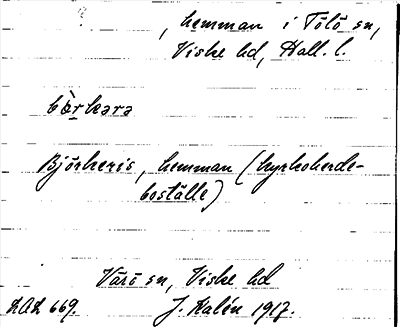 ?, hemman i Tölö sn,
Viske hd, Hall. l.
bɔ̀rkərə
Björkeris, hemman (kyrkoherde-
boställe)
Värö sn, Viske hd
LAL 669. J. Kalén 1917.